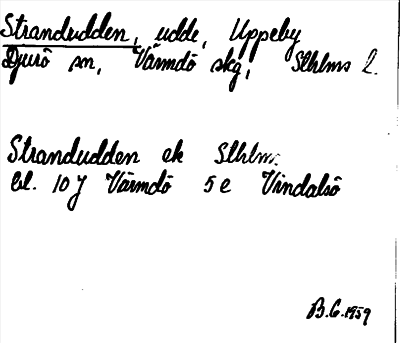 Strandudden, udde, Uppeby
Djurö sn, Värmdö skg, Sthlms l.
Strandudden ek Sthlm:
bl. 10 J Värmdö 5 e Vindalsö
B.G. 1959